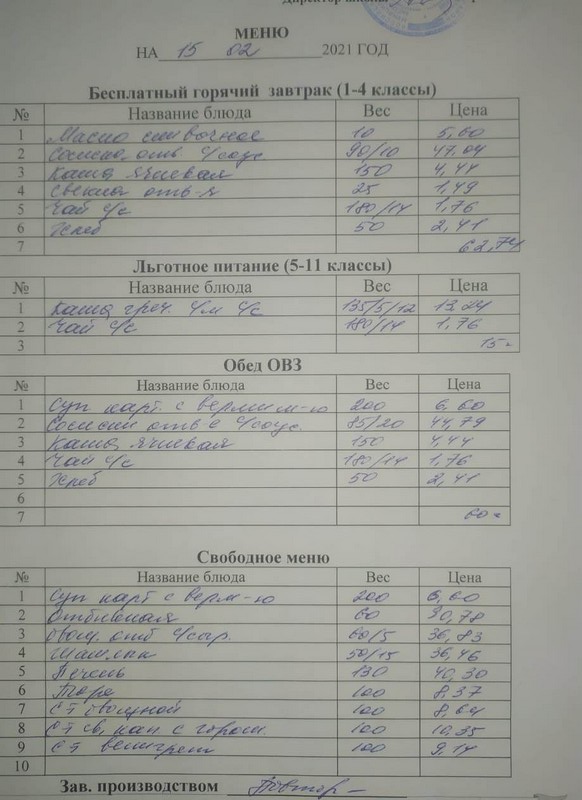 Директор школы
МЕНЮ
НА 15 02 2021 ГОД
Бесплатный горячий завтрак (1-4 классы)
№ Название блюда Вес Цена
1 Масло сливочное 10 5,60
2 Сосиски отв с/соус 90/10 47,04
3 Каша ячневая 150 4,44
4 Свекла отв-я 25 1,49
5 Чай с/с 180/14 1,76
6 Хлеб 50 2,41
7 62,74
Льготное питание (5-11 классы)
№ Название блюда Вес Цена
1 Каша греч. с/м с/с 135/5/12 13,24
2 Чай с/с 180/14 1,76
3 15=
Обед ОВЗ
№ Название блюда Вес Цена
1 Суп карт. с вермиш-ю 200 6,60
2 Сосиски отв с с/соус. 85/20 44,79
3 Каша ячневая 150 4,44
4 Чай с/с 180/14 1,76
5 Хлеб 50 2,41
6
7 60=
Свободное меню
№ Название блюда Вес Цена
1 Суп карт с верм-ю 200 6,60
2 Отбивная 60 30,78
3 отб с/сыр. 60/5 36,83
4 50/15 36,46
5 Печень 130 40,30
6 100 8,37
7 СТ овощной 100 8,64
8 СТ св, кап. с горош. 100 10,35
9 СТ винегрет 100 9,14
10
Зав. производством